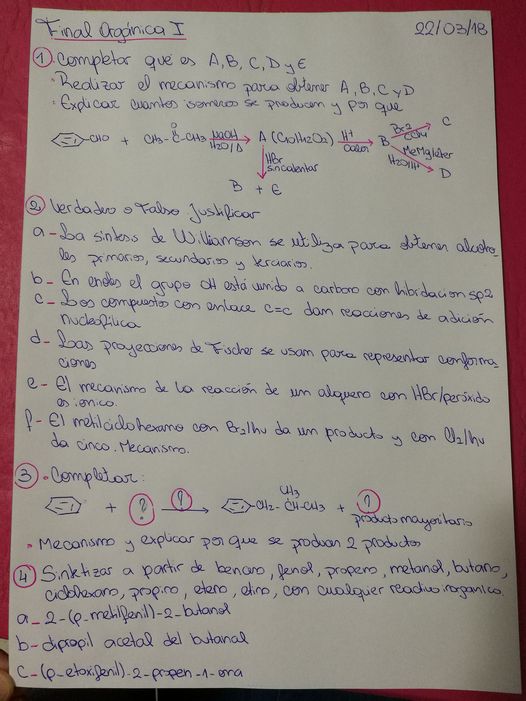 Final Orgánica I 22/03/18
① Completar que es A, B, C, D y E
· Realizar el mecanismo para obtener A, B, C y D
· Explicar cuantos isomeros se producen y por que
-CHO + CH3-C-CH3 NaOH H2O/Δ A (C10H12O2) H+ Calor B Br2 CCl4 C
O
HBr sin calentar MeMgI/eter H2O/H+ D
B + E
② Verdadero o Falso Justificar
a - La sintesis de Williamson se utiliza para obtener alcoho-
les primarios, secundarios y terciarios.
b - En enoles el grupo OH está unido a carbono con hibridacion sp2
c - Los compuestos con enlace C=C dam reacciones de adición
nucleofílica
d - Las proyecciones de Fischer se usam para representar conforma-
ciones
e - El mecanismo de la reacción de un alqueno con HBr/peróxido
es ionico.
f - El metilciclohexano com Br2/hν da un producto y con Cl2/hν
da cinco. Mecanismo.
③ · Completar:
+ ? ? -CH2-CH-CH3 + ?
CH3
producto mayoritario
· Mecanismo y explicar por que se producen 2 productos
④ Sintetizar a partir de benceno, fenol, propeno, metanol, butano,
ciclohexano, propino, eteno, etino, con cualquier reactivo inorganico.
a_ 2-(p-metilfenil)-2-butanol
b- dipropil acetal del butanal
c-(p-etoxifenil)-2-propen-1-ona